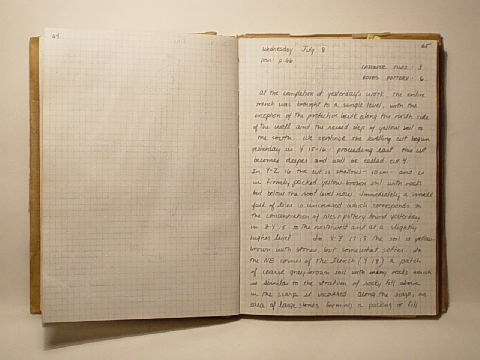 64
65
Wednesday July 8
inv: p. 66
CERAMIC TILES: 3
BOXES POTTERY: 6
At the completion of yesterday's work, the entire
trench was brought to a single level, with the
exception of the protective baulk along the north side
of the wall and the raised step of yellow soil to
the south. We continue the leveling cut began
yesterday in Y 15-16 proceeding east. The cut
becomes deeper and will be called cut 4.
In Y-Z 16 the cut is shallow - 10 cm - and is
in firmly packed yellow-brown soil with rocks
but below the root level now. Immediately a
fall of tiles is uncovered which corresponds to
the concentration of tiles + pottery found yesterday
in Y 15 to the northwest and at a slightly
higher level. In Y 17-18 the soil is yellow-
brown with stones, but somewhat softer. In
the NE corner of the trench (Y 18) a patch
of coarse gray-brown soil with many rocks which
is similar to the stratum of rocky fill above
in the scarp is uncovered. Along the scarp, an
area of large stones forming a packing or fill